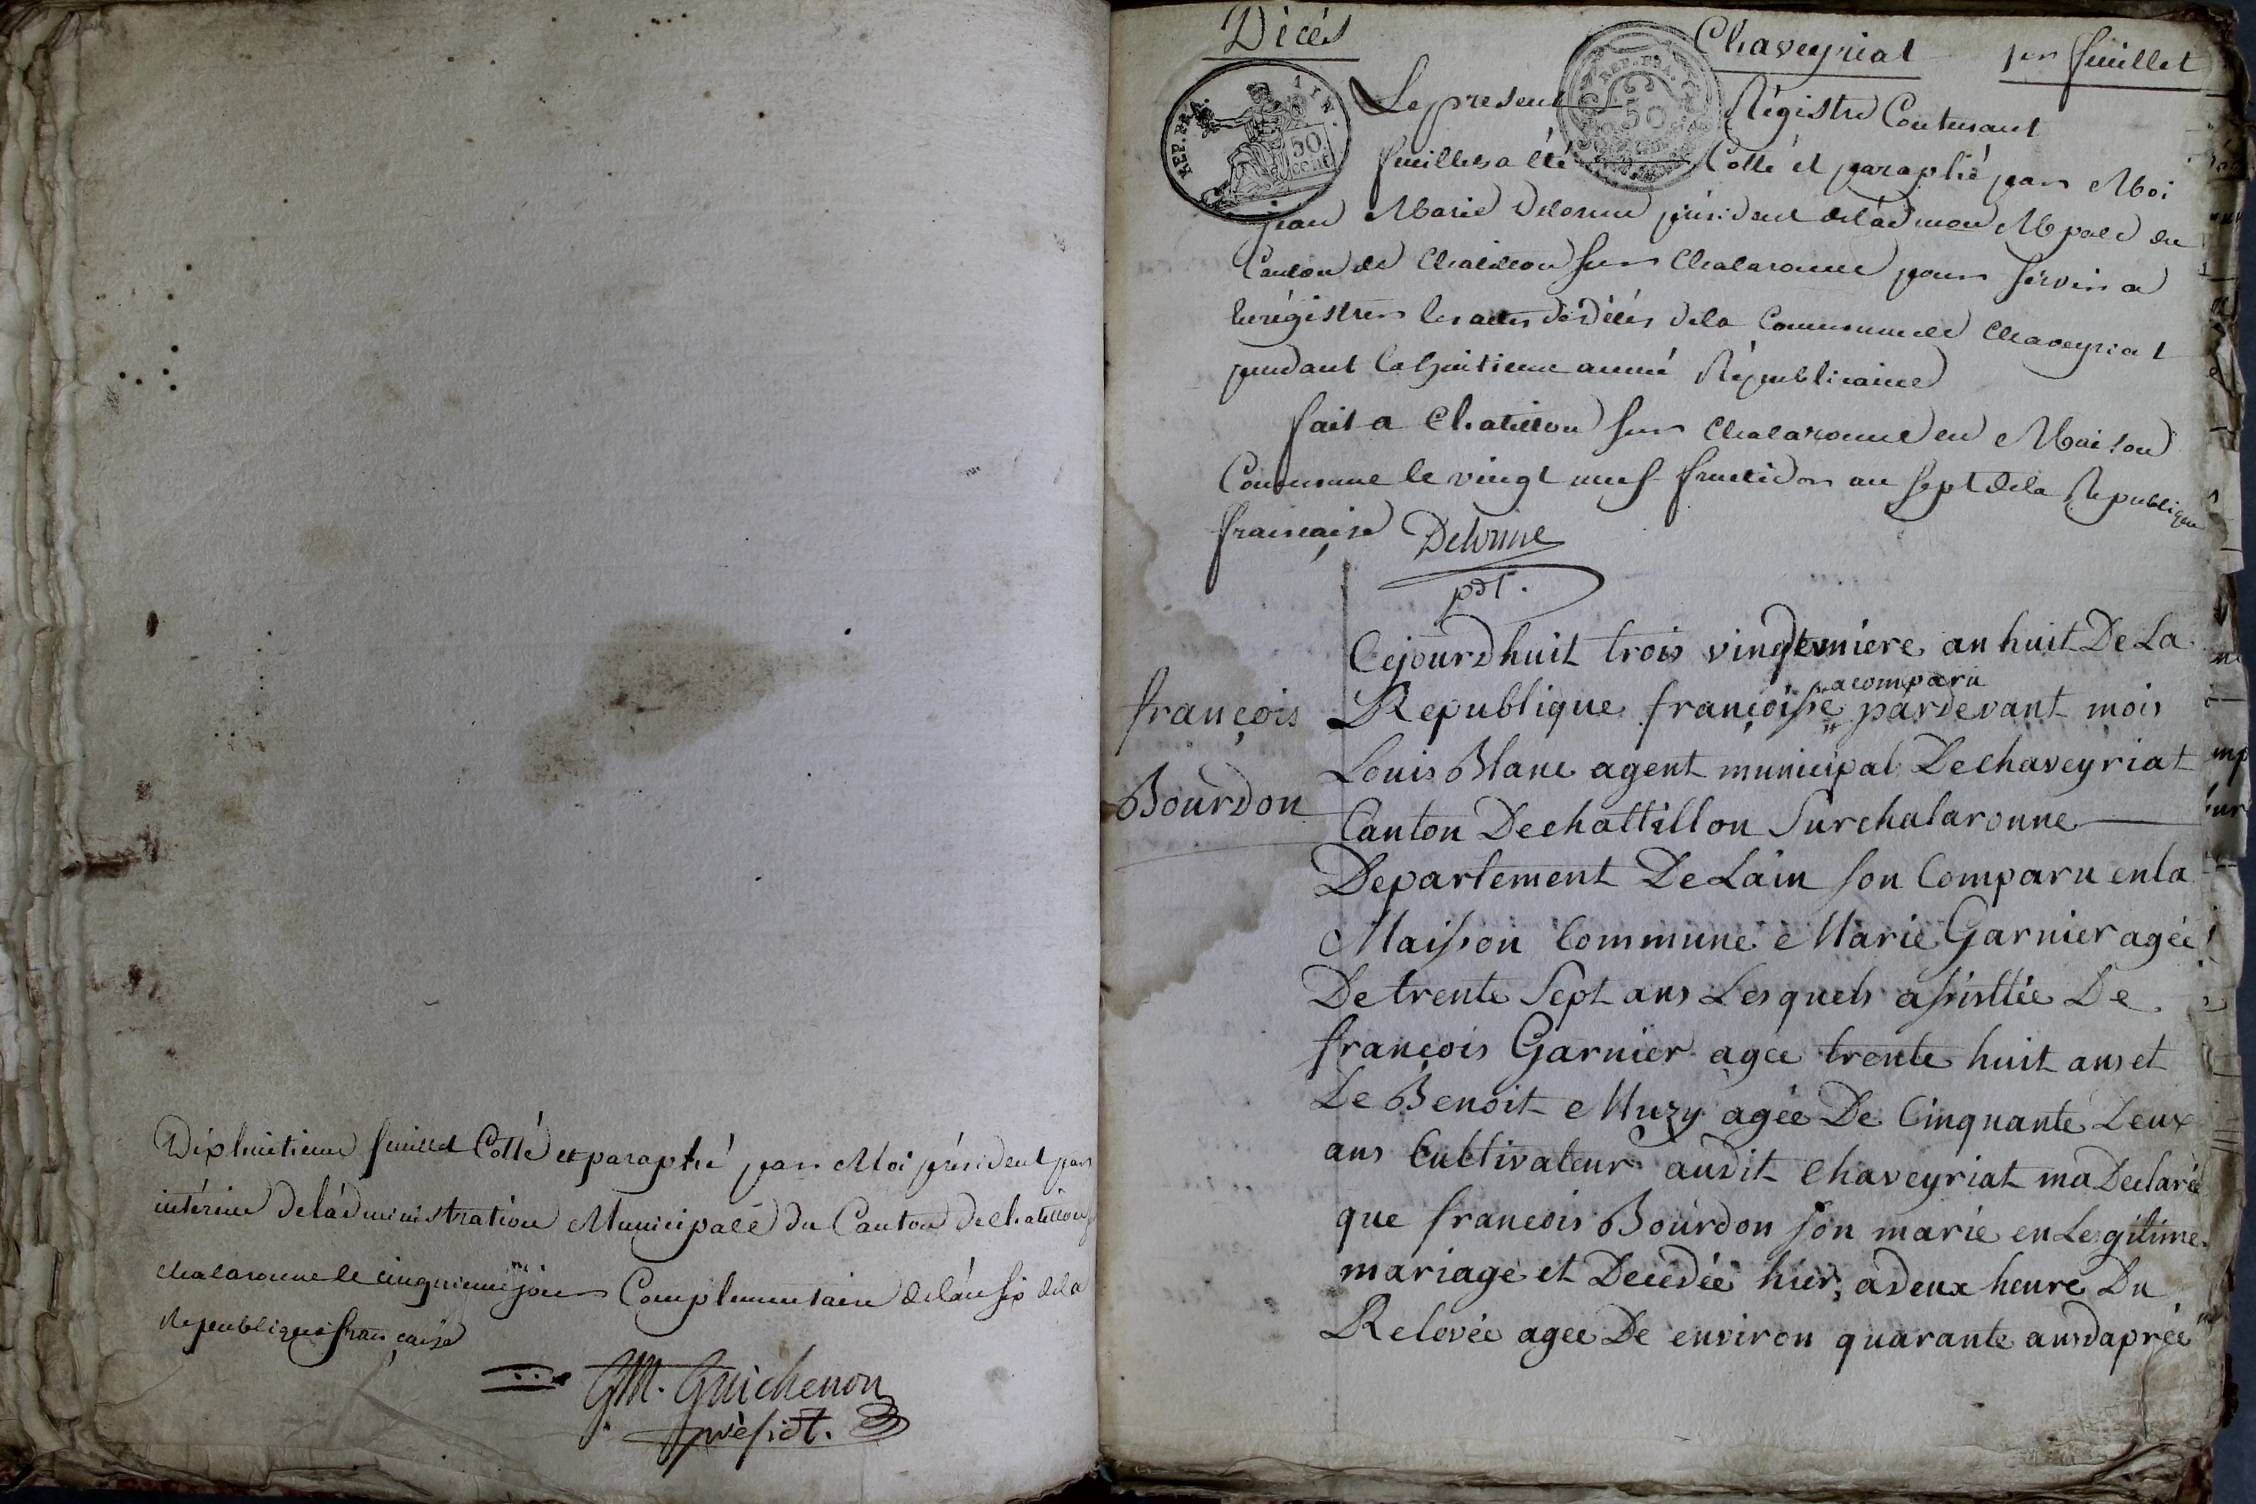 Dixhuitieme feuillet Cotté et paraphé par Moi président par
intérim deladministration Municipale du Canton de Chatillon
chalaronne le cinquieme jour Complementaire delan six dela
Republique française
GM. Guichenon
présidt.
Décés
Chaveyriat
1er feuillet
REP. FRA. AIN.
50 cent
REP. FRA.
50
Le present Régistre Contenant
feuillets a été Cotté et paraphé par Moi
jean Marie Delorme président deladmon Mpale du
Canton de Chatillon sur Chalaronne pour servir a
Enrégistrer les actes de décés dela Commune de Chaveyriat
pendant la huitieme anné Républicaine
fait a Chatillon sur Chalaronne en Maison
Commune le vingt neuf fructidor an sept dela Republique
francaise Delorme
pdt.
françois
Bourdon
Cejourdhuit trois vingdemiere an huit De La
acomparu
Republique françoisse pardevant mois
Louis Blanc agent municipal Dechaveyriat
Canton Dechattillon Surchalaronne
Departement De Lain son Comparu enla
Maisson Commune Marie Garnier agée
De trente Sept ans Lesquels assisttée De
françois Garnier agee trente huit ans et
De Benoit Muzy agée De Cinquante Deux
ans Cultivateur audit Chaveyriat ma Declaré
que francois Bourdon son marie en Legitime
mariage et Decedée hier, a deux heure Du
Relevée agee De environ quarante ans daprée